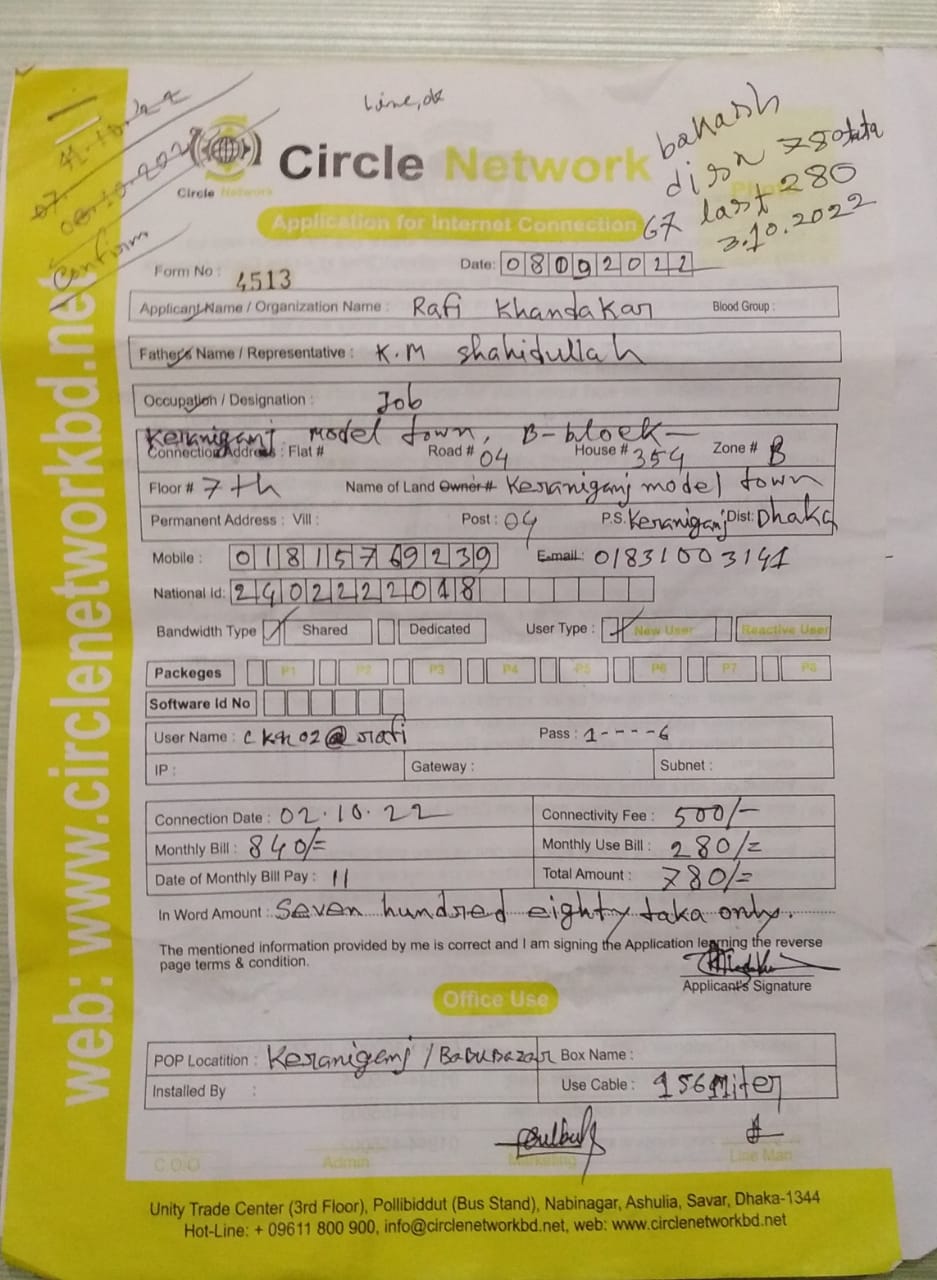 Line, ok
bakash
disn 780 tata
67 last 280
3.10.2022
08-10-202
Confirm
Circle Network
Circle Network
Application for Internet Connection
Form No : 4513
Date: 08092022
Applicant Name / Organization Name : Rafi Khandakar Blood Group :
Father's Name / Representative : K.M Shahidullah
Occupation / Designation : Job
Keraniganj model town, B-block
Connection Address : Flat # Road # 04 House # 354 Zone # B
Floor # 7th Name of Land Owner# Keraniganj model town
Permanent Address : Vill : Post : 04 P.S. Keraniganj Dist: Dhaka
Mobile : 01815769239 E-mail: 01831003141
National Id: 2402222018
Bandwidth Type Shared Dedicated User Type : New User Reactive User
Packeges P1 P2 P3 P4 P5 P6 P7 P8
Software Id No
User Name : ckn02@rafi Pass : 1----6
IP : Gateway : Subnet :
Connection Date : 02.10.22 Connectivity Fee : 500/-
Monthly Bill : 840/= Monthly Use Bill : 280/=
Date of Monthly Bill Pay : 11 Total Amount : 780/=
In Word Amount : Seven hundred eighty taka only.
The mentioned information provided by me is correct and I am signing the Application learning the reverse
page terms & condition.
Applicant's Signature
Office Use
POP Locatition : Keraniganj / Babubazar Box Name :
Installed By : Use Cable : 156 Miter
C.O.O Admin Marketing Line Man
Unity Trade Center (3rd Floor), Pollibiddut (Bus Stand), Nabinagar, Ashulia, Savar, Dhaka-1344
Hot-Line: + 09611 800 900, info@circlenetworkbd.net, web: www.circlenetworkbd.net
web: www.circlenetworkbd.net